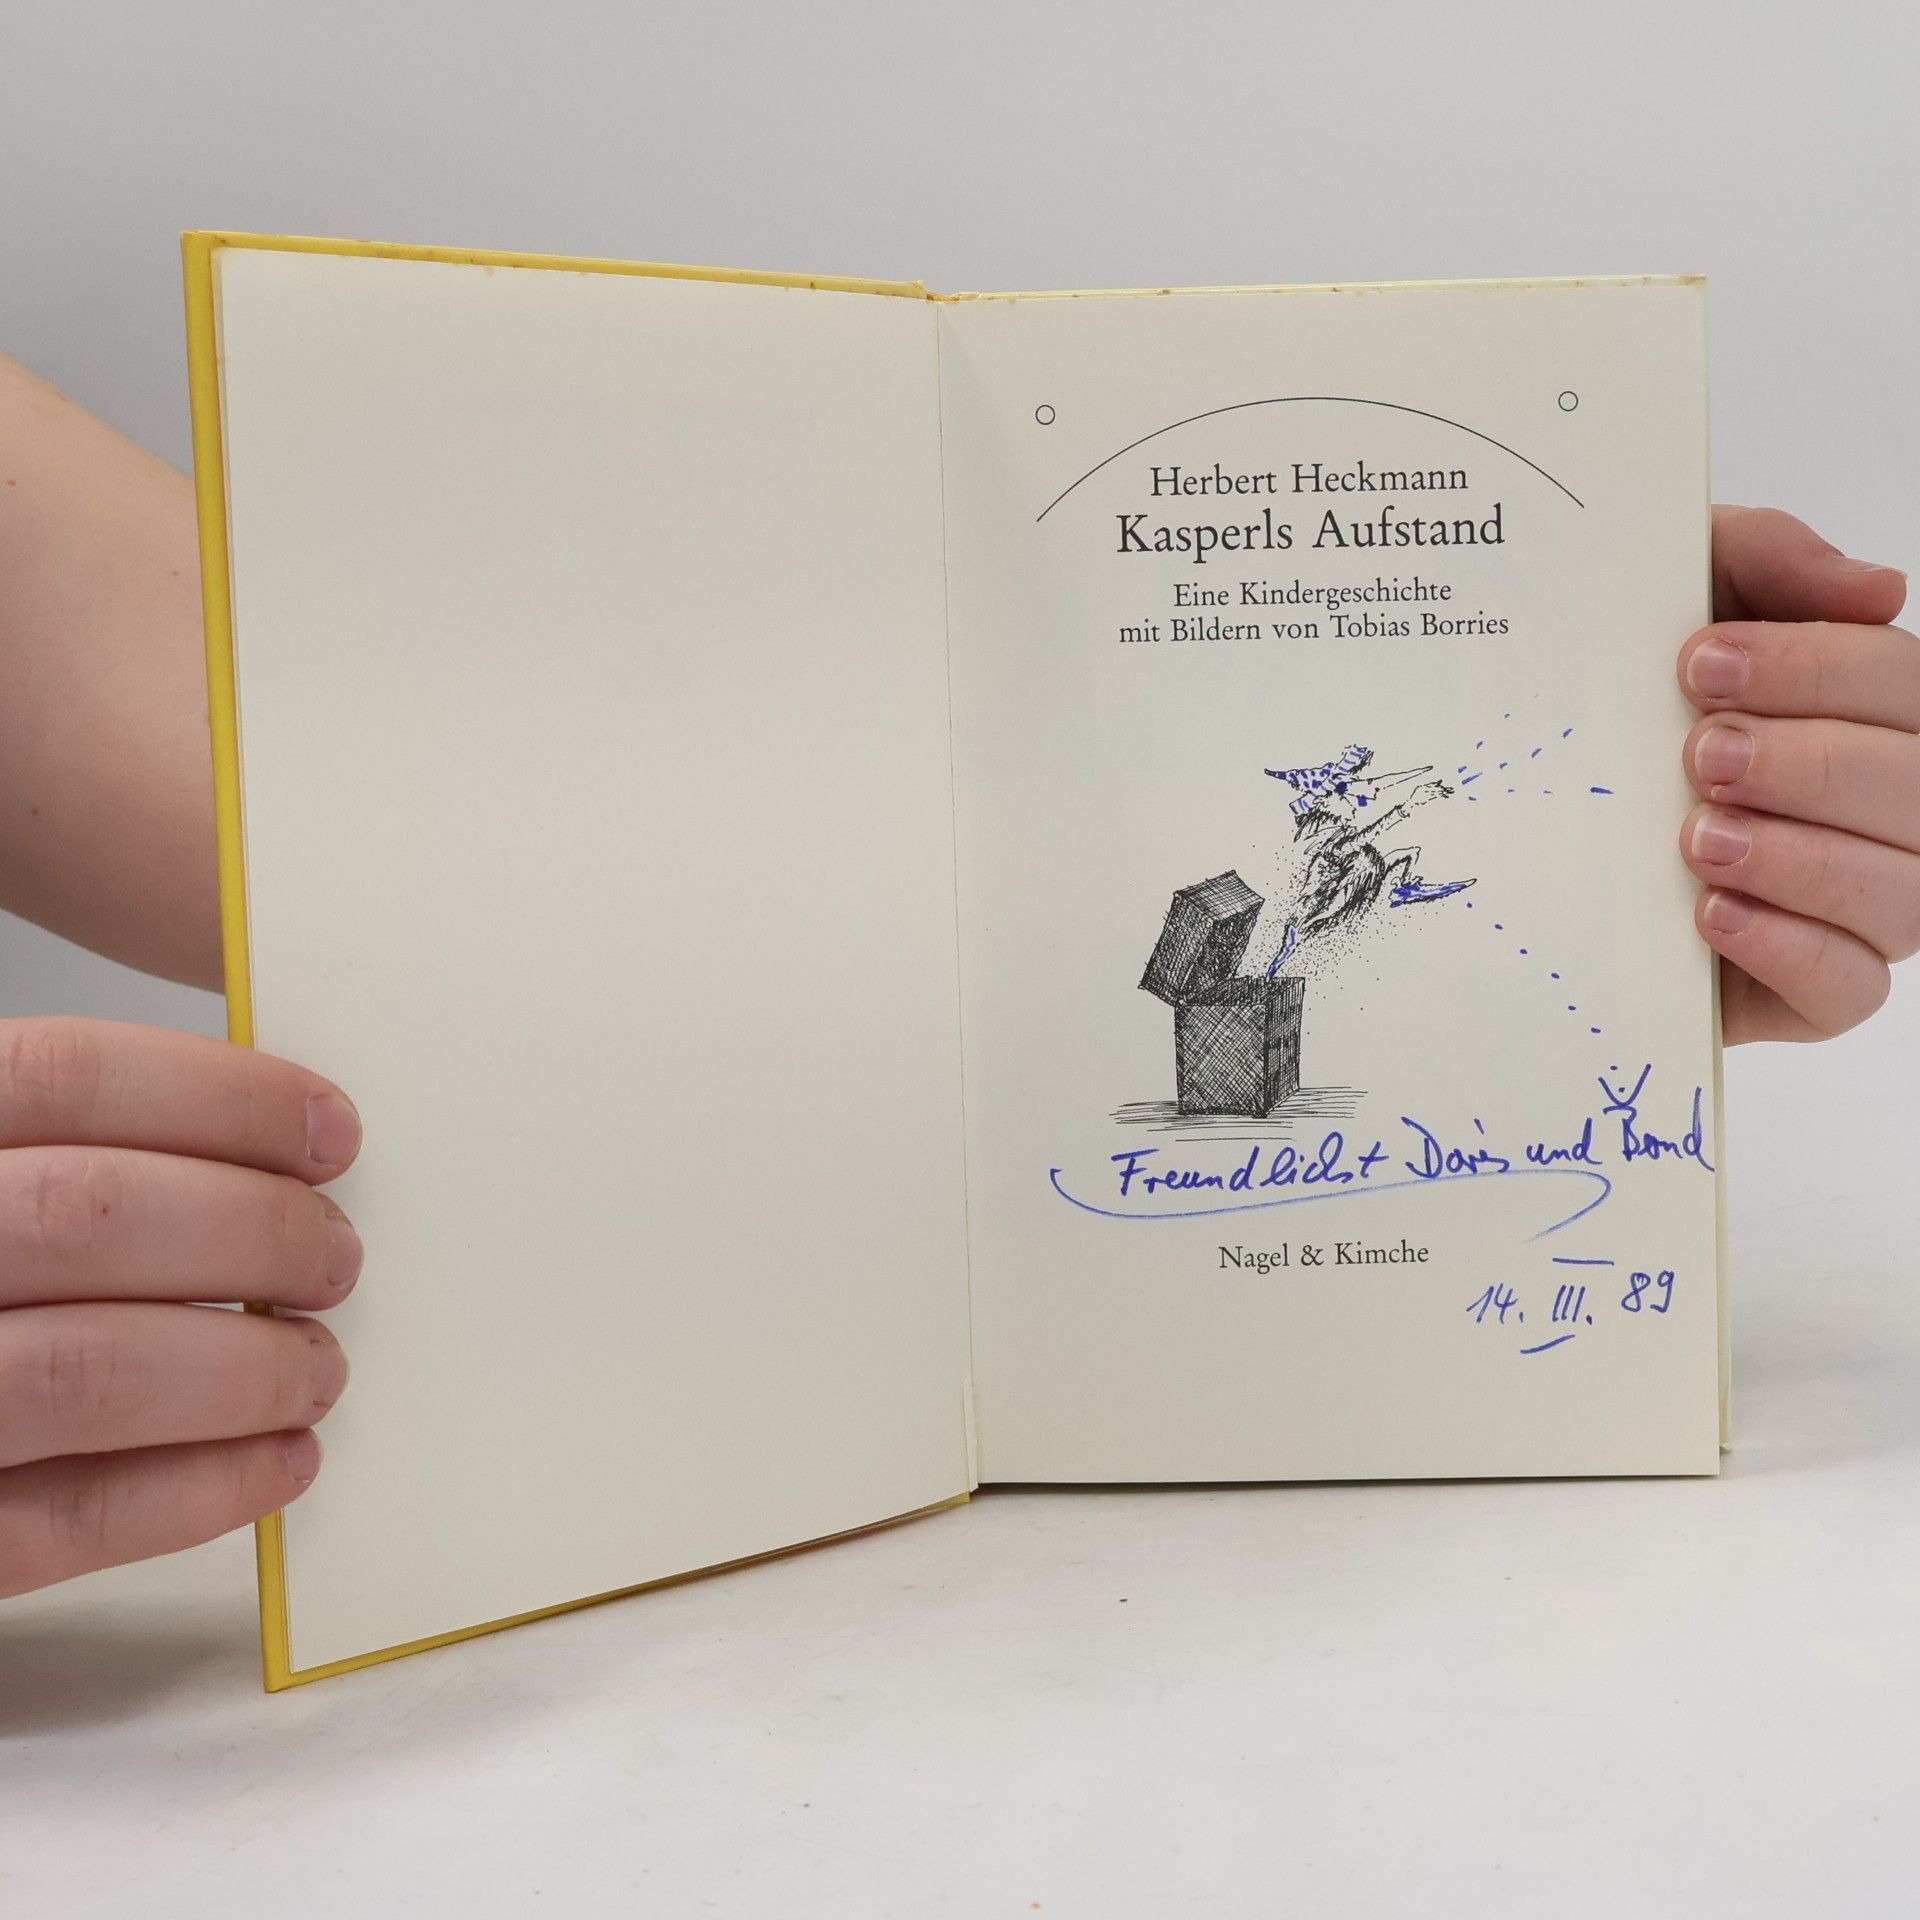 Herbert Heckmann
Kasperls Aufstand
Eine Kindergeschichte
mit Bildern von Tobias Borries
Freundlichst Doris und Bond
Nagel & Kimche
14. III. 89